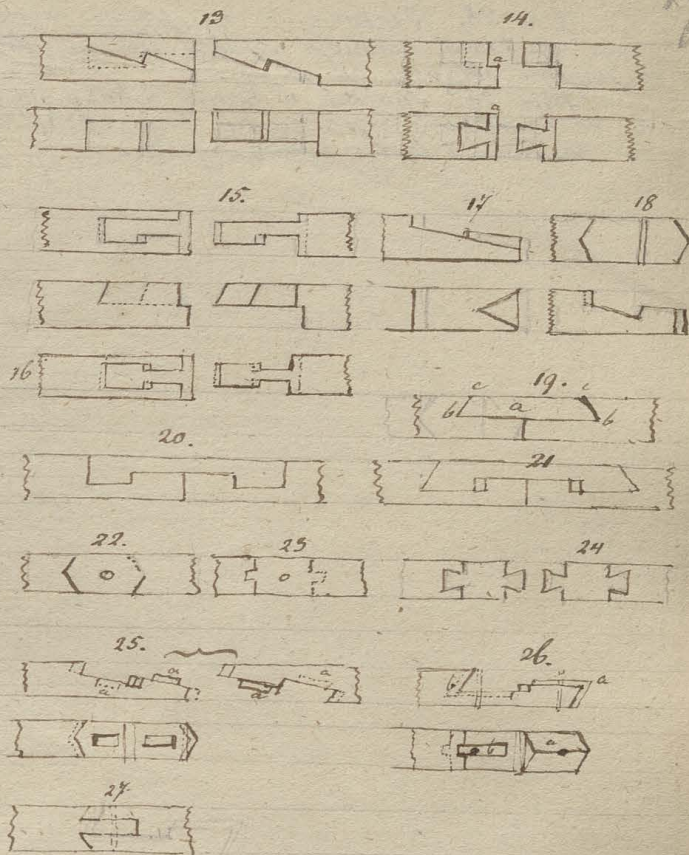 13 14.
a
a
15. 17 18
16
19.
c c
b a b
20. 21
22. 23 24
25. 26.
a a
a a
b a a
b a
27